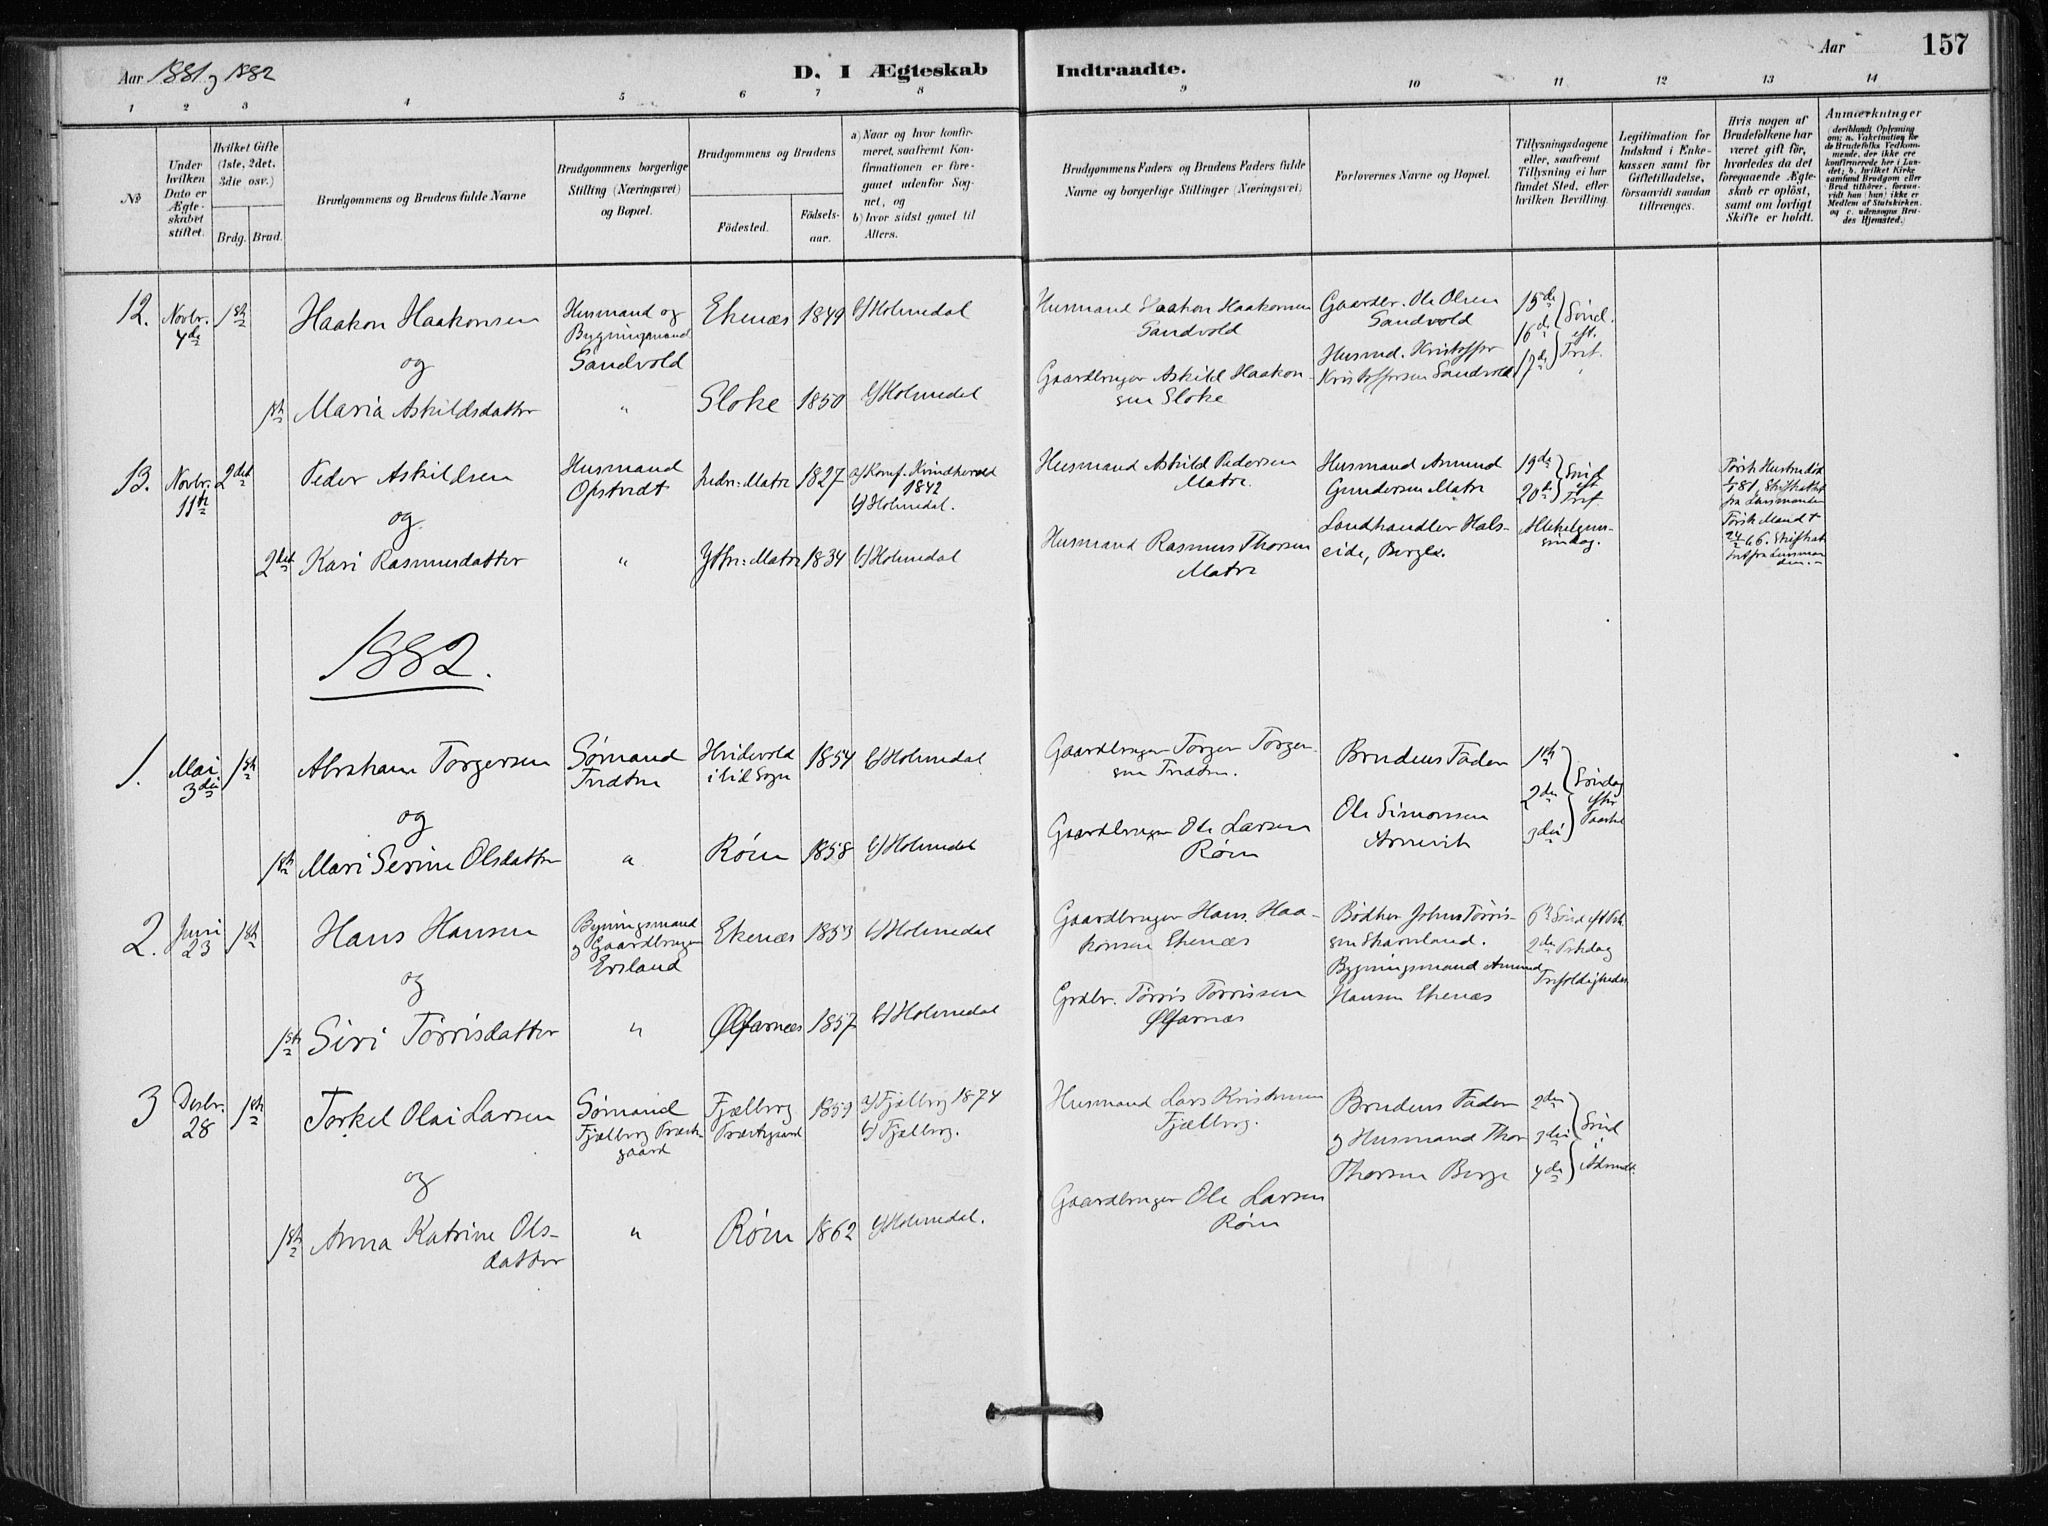 Aar 1881 og 1882
D. I Ægteskab Indtraadte.
Aar
157
1 2 3 4 5 6 7 8 9 10 11 12 13 14
No
Under hvilken Dato er Ægteskabet stiftet.
Hvilket Gifte (1ste, 2det, 3die osv.)
Brdg. Brud.
Brudgommens og Brudens fulde Navne
Brudgommens borgerlige Stilling (Næringsvei) og Bopæl.
Brudgommens og Brudens
Fødested.
Fødselsaar.
a) Naar og hvor konfirmeret, saafremt Konfirmationen er foregaaet udenfor Sognet, og
b) hvor sidst gaaet til Alters.
Brudgommens Faders og Brudens Faders fulde Navne og borgerlige Stillinger (Næringsvei)
Forlovernes Navne og Bopæl.
Tillysningsdagene eller, saafremt Tillysning ei har fundet Sted, efter hvilken Bevilling.
Legitimation for Indskud i Enkekassen samt for Giftetilladelse, forsaavidt saadan tiltrænges.
Hvis nogen af Brudefolkene har været gift før, hvorledes da det foregaaende Ægteskab er opløst, samt om lovligt Skifte er holdt.
Anmærkninger (deriblandt Oplysning om: a. Vakcination for de Brudefolks Vedkommende, der ikke ere konfirmerede her i Landet; b. hvilket Kirkesamfund Brudgom eller Brud tilhører, forsaavidt han (hun) ikke er Medlem af Statskirken, og c. udensogns Brudes Hjemsted.)
12. Novbr. 4de 1ste Haakon Haakonsen Husmand og Bygningsmand Sandvold Ekenæs 1849 b) Holmedal Husmand Haakon Haakonsen Sandvold Gaardbr. Ole Olsen Sandvold 15de 16de 17de Sønd. eft. Tref.
og
1ste Maria Askildsdatter " Sloke 1850 b) Holmedal Gaardbruger Askild Haakonsen Sloke Husmd. Kristoffer Kristoffersen Sandvold
13. Novbr. 11te 2det Peder Askildsen Husmand Opstvedt nedre Matre 1827 a) Konf. Kvindherred 1842 b) Holmedal. Husmand Askild Pedersen Matre. Husmand Amund Gundersen Matre 19de 20de Sønd eft Tref.
og
2det Kari Rasmusdatter " Ythre Matre 1834 b) Holmedal Husmand Rasmus Thorsen Matre Landhandler Halseide, Berge. Allehelgensøndag.
1882.
1. Mai 3die 1ste Abraham Torgersen Sømand Tvedten Hvidevold i Eid Sogn 1854 b) Holmedal Gaardbruger Torger Torgersen Tvedten. Brudens Fader 1ste 2den 3die Søndag efter Paaske
og
1ste Mari Serine Olsdatter " Røen 1858 b) Holmedal Gaardbruger Ole Larsen Røen Ole Simonsen Arnevik
2. Juni 23 1ste Hans Hansen Bygningsmand og Gaardbruger Ersland Ekenæs 1853 b) Holmedal Gaardbruger Hans Haakonsen Ekenæs Bødker Johns Tørrissen Skarveland. 6te Sønd eft Psk 2den Pskdag Trefoldigheds
og
1ste Siri Tørrisdatter " Ølfarnæs 1857 b) Holmedal Grdbr. Tørris Tørrissen Ølfarnæs Bygningsmand Amund Hansen Ekenæs
3 Desbr. 28 1ste Torkel Olai Larsen Sømand Fjælberg Præstegaard Fjælberg Præstegaard 1859 a) Fjælberg 1874 b) Fjælberg. Husmand Lars Kristensen Fjælberg. Brudens Fader og Husmand Thor Thorsen Berge 2den 3die 4de Sønd i Advendt
og
1ste Anna Katrine Olsdatter " Røen 1862 b) Holmedal. Gaardbruger Ole Larsen Røen